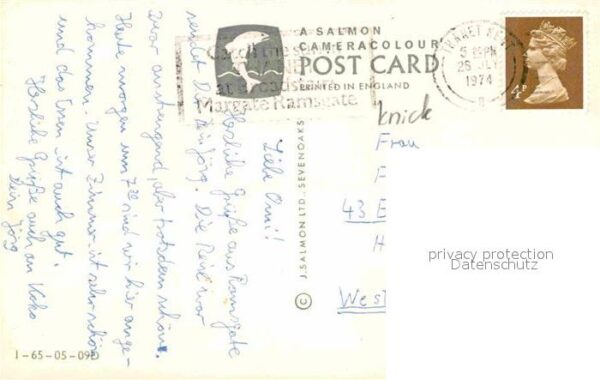 Liebe Omi!
Herzliche Grüße aus Ramsgate
sendet Dir Dein Jörg. Die Reise war
zwar anstrengend, aber trotzdem schön.
Heute morgen um 7 30 sind wir hier ange-
kommen. Unser Zimmer ist sehr schön
und das Essen ist auch gut.
Herzliche Grüße auch an
Dein Jörg
1-65-05-09D
A SALMON
CAMERACOLOUR
POST CARD
PRINTED IN ENGLAND
© J. SALMON LTD., SEVENOAKS
Catch the sun
at Broadstairs
Margate Ramsgate
THANET
5 15 PM
25 JLY
1974
4P
knick
Frau
F
43 E
H
West
privacy protection
Datenschutz